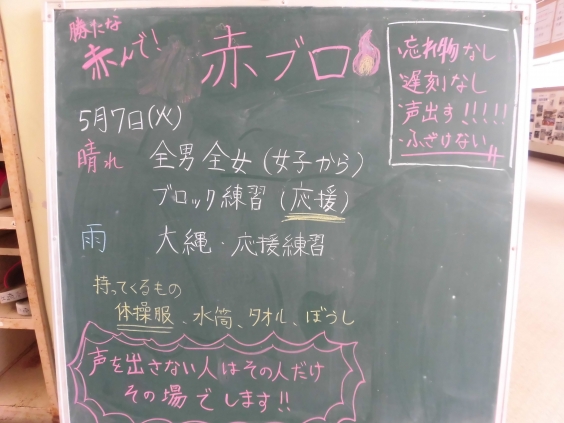 勝たな
赤んで!
赤ブロ
・忘れ物なし
・遅刻なし
・声出す!!!!!
・ふざけない!!
5月7日(火)
晴れ 全男全女(女子から)
ブロック練習(応援)
雨 大縄・応援練習
持ってくるもの
体操服、水筒、タオル、ぼうし
声を出さない人はその人だけ
その場でします!!